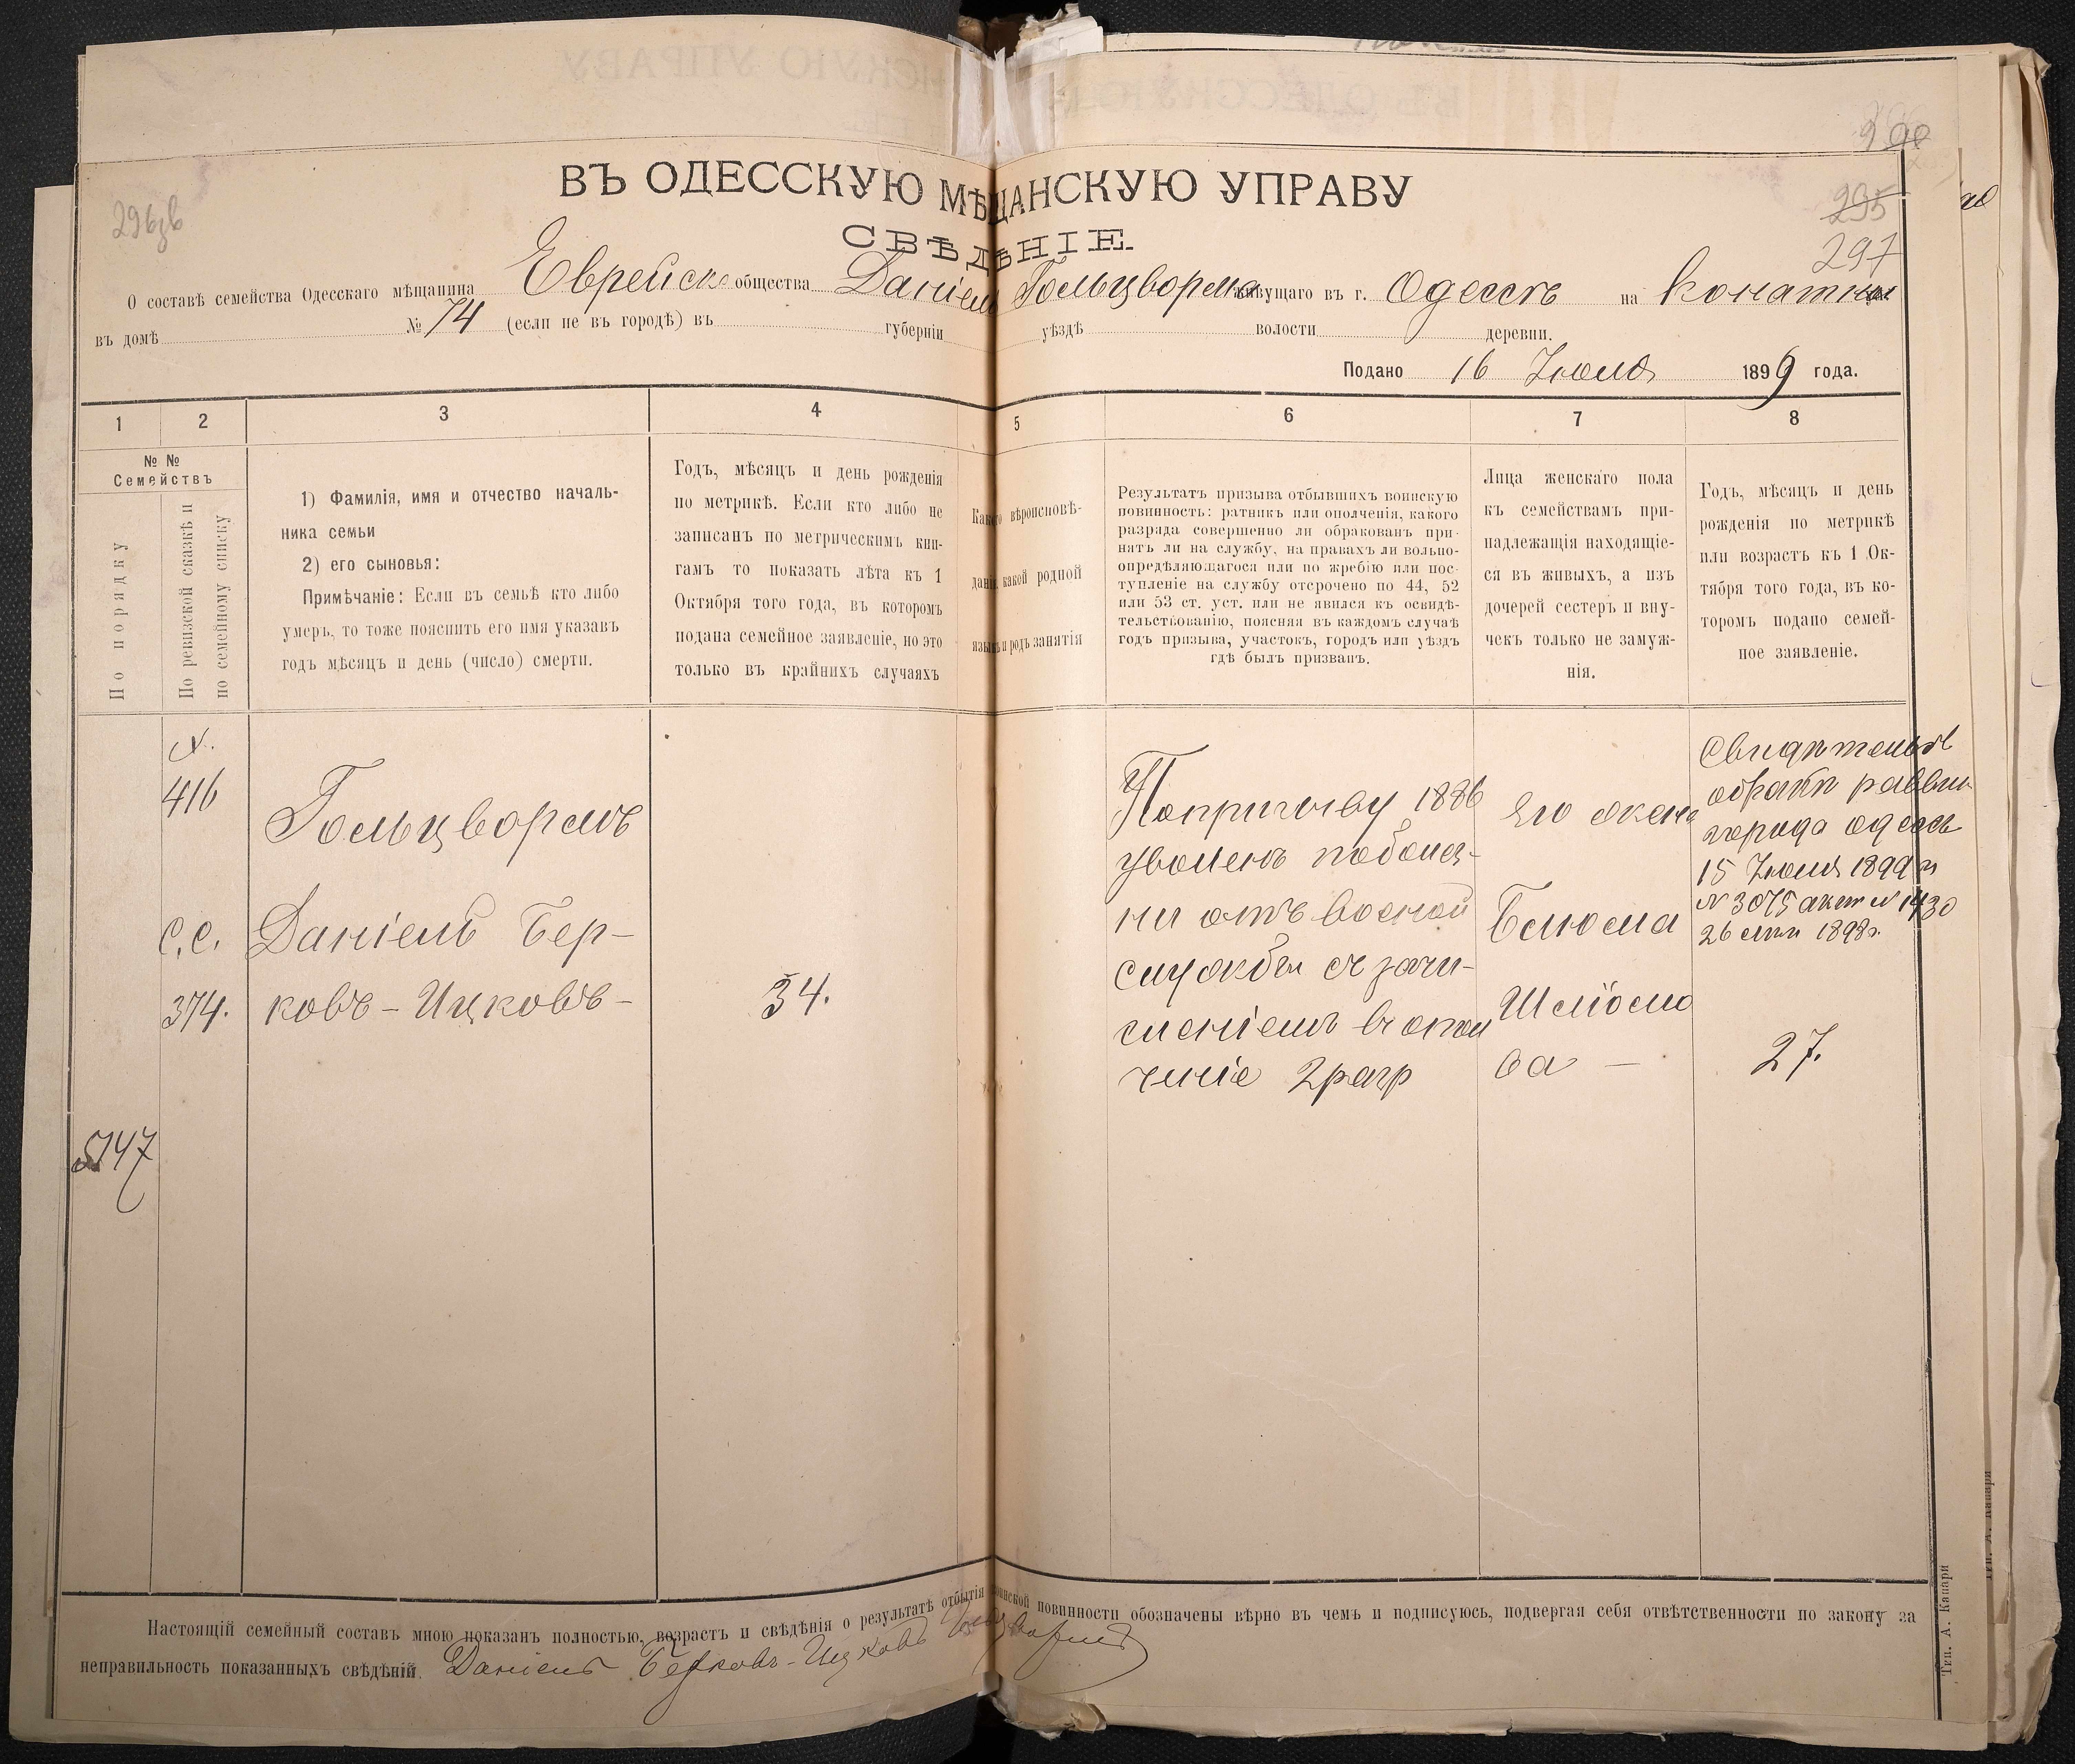 ВЪ ОДЕССКУЮ МѢЩАНСКУЮ УПРАВУ
СВѢДѢНІЕ.
295
297
О составѣ семейства Одесскаго мѣщанина Еврейск общества Даніель Гольцвормъ живущаго въ г. Одессѣ на Конатной
въ домѣ № 74 (если не въ городѣ) въ губерніи уѣздѣ волости деревни.
Подано 16 Іюля 1899 года.
1 2 3 4 5 6 7 8
№ №
Семействъ
По порядку
По ревизской сказкѣ и
по семейному списку
1) Фамилія, имя и отчество началь-
ника семьи
2) его сыновья:
Примѣчаніе: Если въ семьѣ кто либо
умеръ, то тоже пояснить его имя указавъ
годъ мѣсяцъ и день (число) смерти.
Годъ, мѣсяцъ и день рожденія
по метрикѣ. Если кто либо не
записанъ по метрическимъ кни-
гамъ то показать лѣта къ 1
Октября того года, въ которомъ
подана семейное заявленіе, но это
только въ крайнихъ случаяхъ
Какого вѣроисповѣ-
данія, какой родной
языкъ и родъ занятія
Результатъ призыва отбывшихъ воинскую
повинность: ратникъ или ополченія, какого
разряда совершенно ли обракованъ при-
нятъ ли на службу, на правахъ ли вольно-
опредѣляющагося или по жребію или пос-
тупленіе на службу отсрочено по 44, 52
или 53 ст. уст. или не явился къ освидѣ-
тельствованію, поясняя въ каждомъ случаѣ
годъ призыва, участокъ, городъ или уѣздъ
гдѣ былъ призванъ.
Лица женскаго пола
къ семействамъ при-
надлежащія находящіе-
ся въ живыхъ, а изъ
дочерей сестеръ и вну-
чекъ только не замуж-
нія.
Годъ, мѣсяцъ и день
рожденія по метрикѣ
или возрастъ къ 1 Ок-
тября того года, въ ко-
торомъ подано семей-
ное заявленіе.
416
С.С.
374.
5747
Гольцвормъ
Даніель Бер-
ковъ-Ицковъ-
34.
По призыву 1886
уволенъ по болез-
ни отъ военой
службы съ зачи-
сленіемъ въ опол
ченіе 2 разр
Его жена
Блюма
Шлiомо
ва —
Свидѣтельств
о бракѣ раввин
города Одессы
15 Іюля 1899 г
№ 3075 акт № 1430
26 1898 г.
27.
Настоящій семейный составъ мною показанъ полностью, возрастъ и свѣдѣнія о результатѣ отбытія воинской повинности обозначены вѣрно въ чемъ и подписуюсь, подвергая себя отвѣтственности по закону за
неправильность показанныхъ свѣдѣній. Даніель Берковъ-Ицковъ Гольцвормъ
Тип. А. Капари